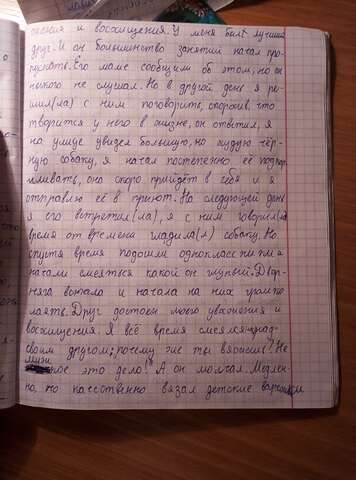 жения и восхищения. У меня был лучший
друг. И он большинство занятий начал про-
пускать. Его маме сообщили об этом, но он
никого не слушал. Но в другой день я ре-
шил(ла) с ним поговорить, спросив, что
творится у него в жизне, он ответил, я
на улице увидел большую, но худую чёр-
ную собаку, я начал постепенно её подкар-
мливать, она скоро прийдёт в себя и я
отправлю её в приют. На следующей день
я его встретил(ла), я с ним говорил(ла)
время от времени гладила(л) собаку. Но
спустя время подошли одноклассники и
начали смеяться какой он глупый. Двор-
няга встала и начала на них громко
лаять. Друг достоен моего уважения и
восхищения. Я всё время смеялся над
своим другом; почему же ты вяжешь? Не
это дело!" А он молчал. Медлен-
но, но качественно вязал детские варежки